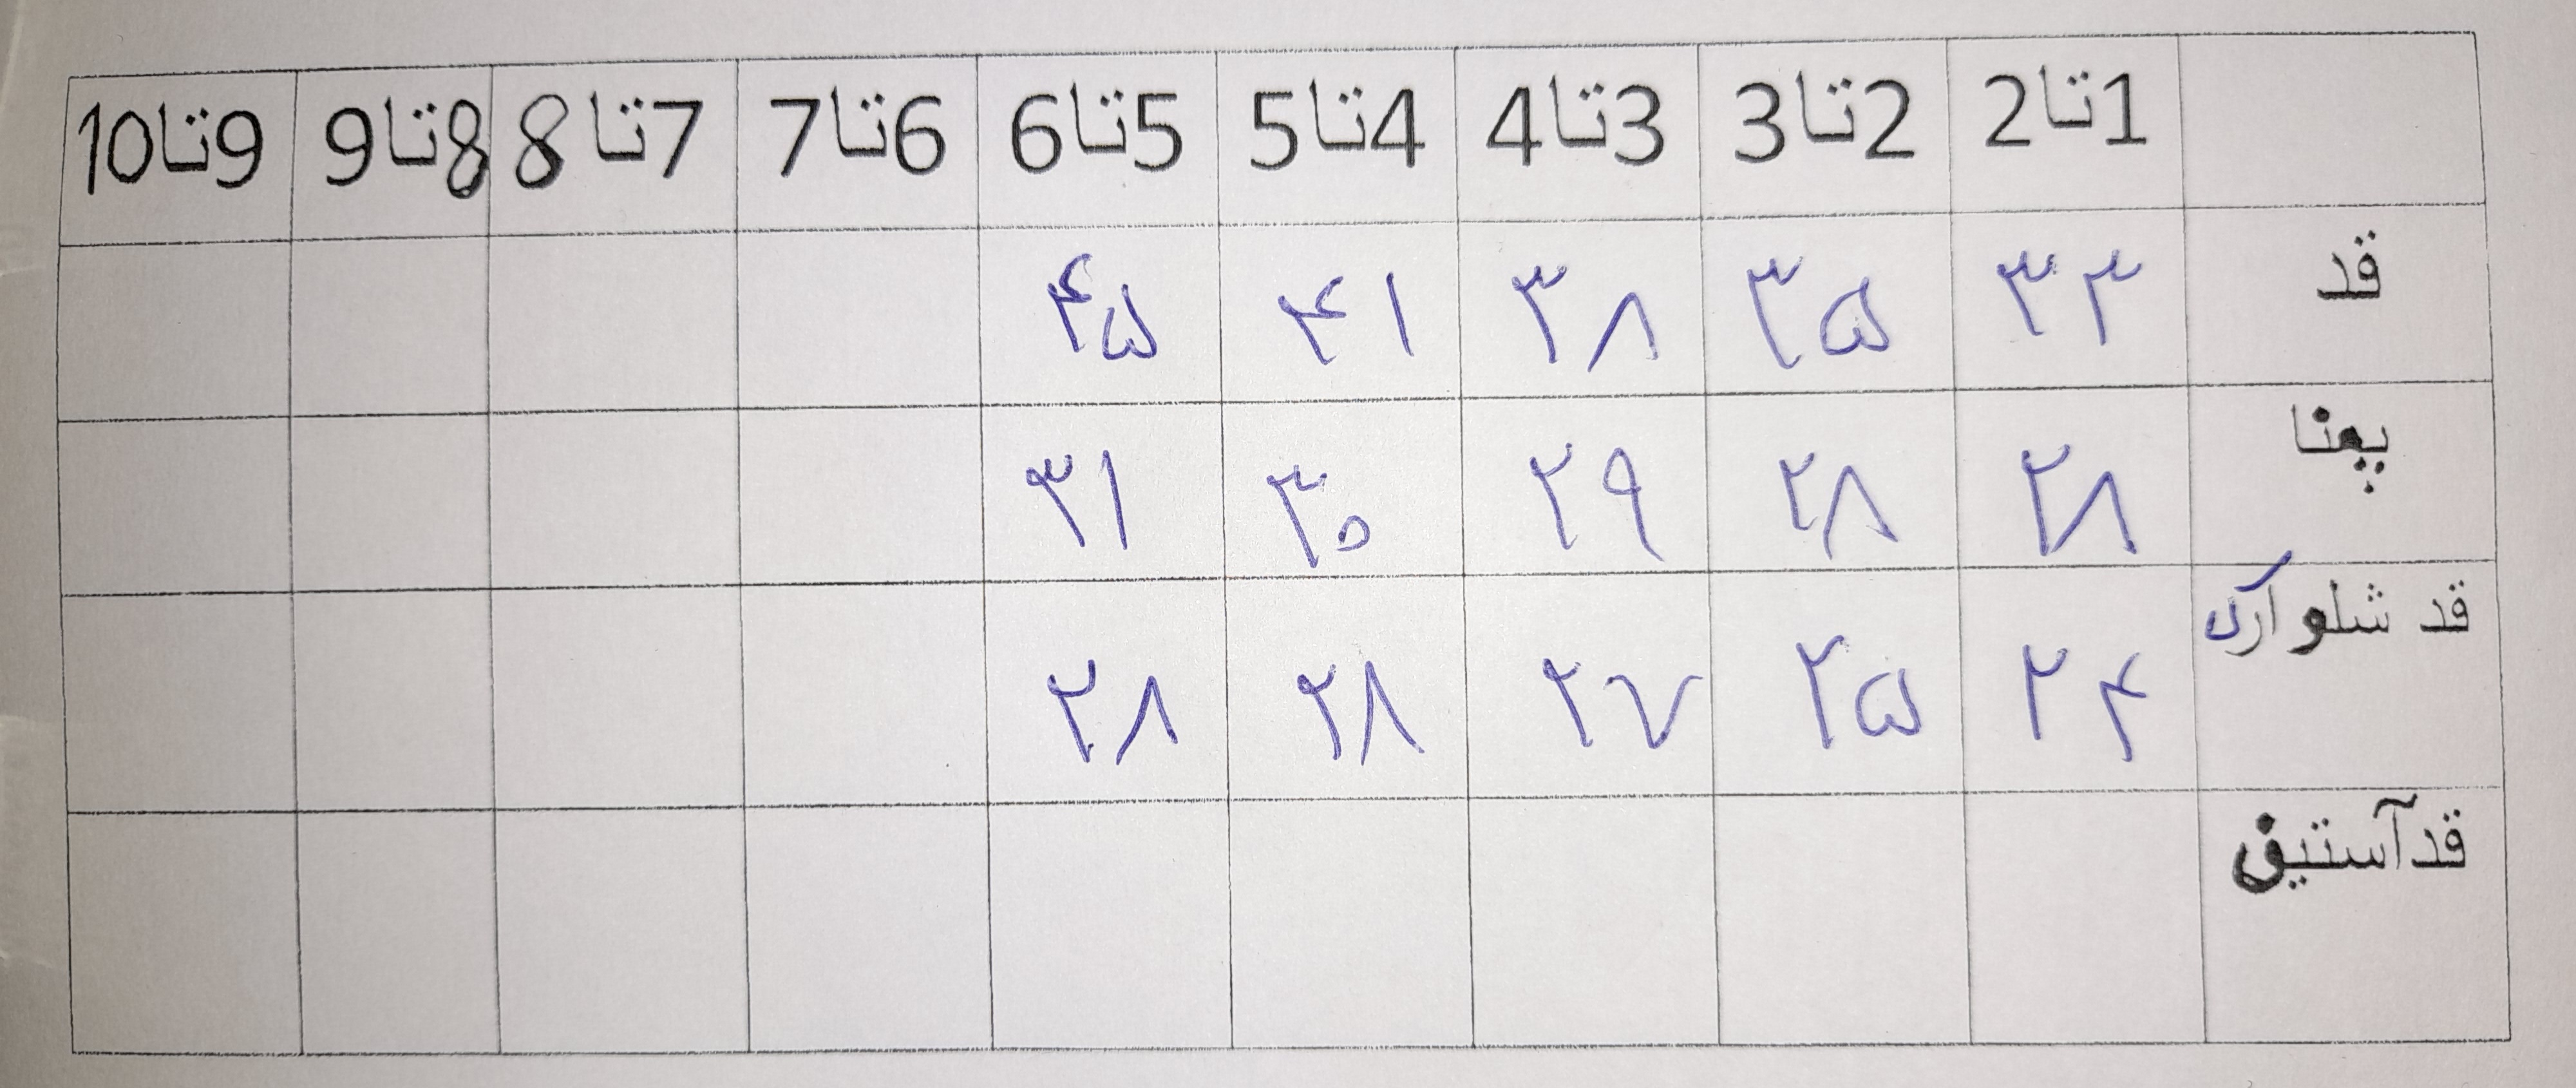 1تا2 2تا3 3تا4 4تا5 5تا6 6تا7 7تا8 8تا9 9تا10
قد ۳۳ ۳۵ ۳۸ ۴۱ ۴۵
پهنا ۲۸ ۲۸ ۲۹ ۳۰ ۳۱
قد شلوارک ۲۴ ۲۵ ۲۷ ۲۸ ۲۸
قدآستین